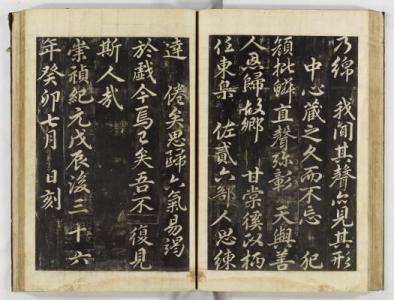 乃綿 我聞其聲見其形
中心藏之久而不忘 犯
顔批鱗直聲弥彰 天與善
人歸故鄉 甘棠以柄
任東 佐貳六部 人思練
達 倦矣思歸 六氣易
於戲今焉已矣吾不復見
斯人哉
崇禎紀元戊辰後三十六
年癸卯七月 日刻